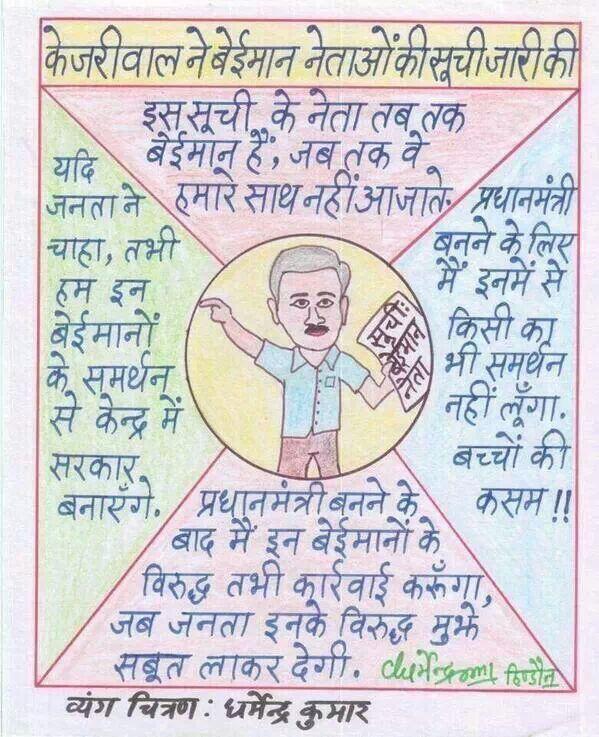 केजरीवाल ने बेईमान नेताओं की सूची जारी की
इस सूची के नेता तब तक
बेईमान हैं, जब तक वे
हमारे साथ नहीं आ जाते.
यदि
जनता ने
चाहा, तभी
हम इन
बेईमानों
के समर्थन
से केन्द्र में
सरकार
बनाएँगे.
सूची:
बेईमान
नेता
प्रधानमंत्री
बनने के लिए
मैं इनमें से
किसी का
भी समर्थन
नहीं लूँगा.
बच्चों की
कसम !!
प्रधानमंत्री बनने के
बाद मैं इन बेईमानों के
विरुद्ध तभी कार्रवाई करूँगा,
जब जनता इनके विरुद्ध मुझे
सबूत लाकर देगी.
हिण्डौन
व्यंग चित्रण : धर्मेन्द्र कुमार